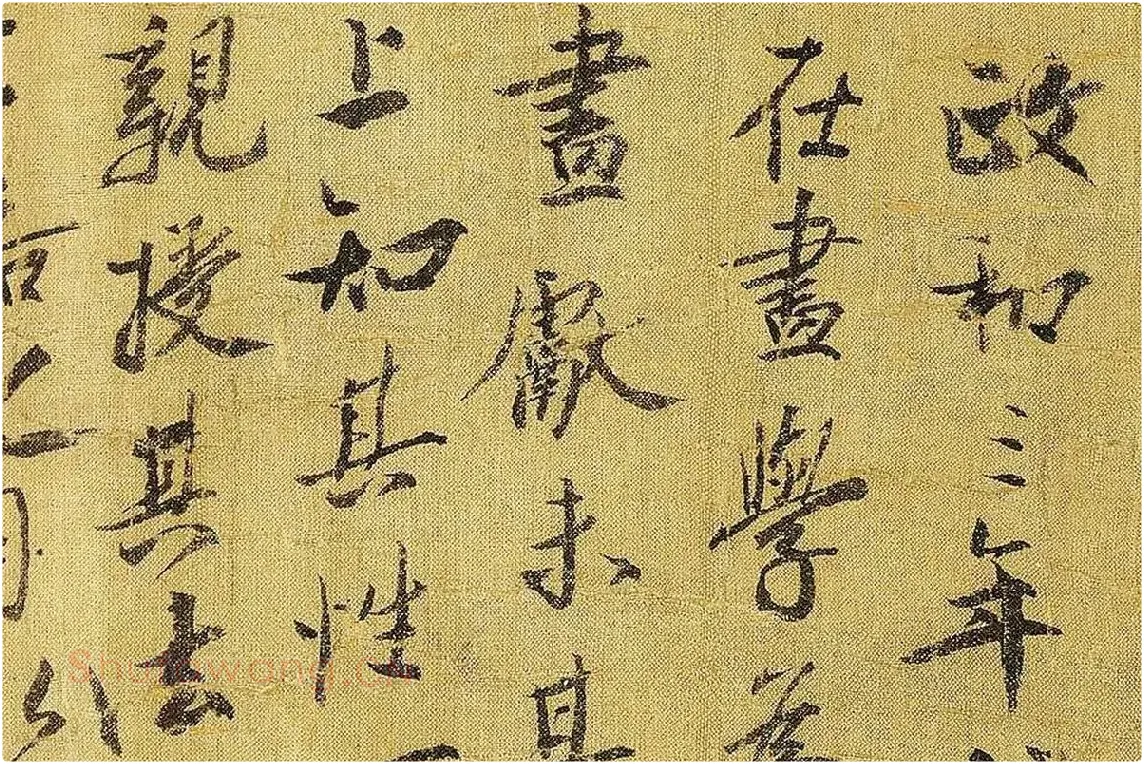 政和三年
在畫學為
畫獻未甚
上知其性
親授其法
Shufawang.cn